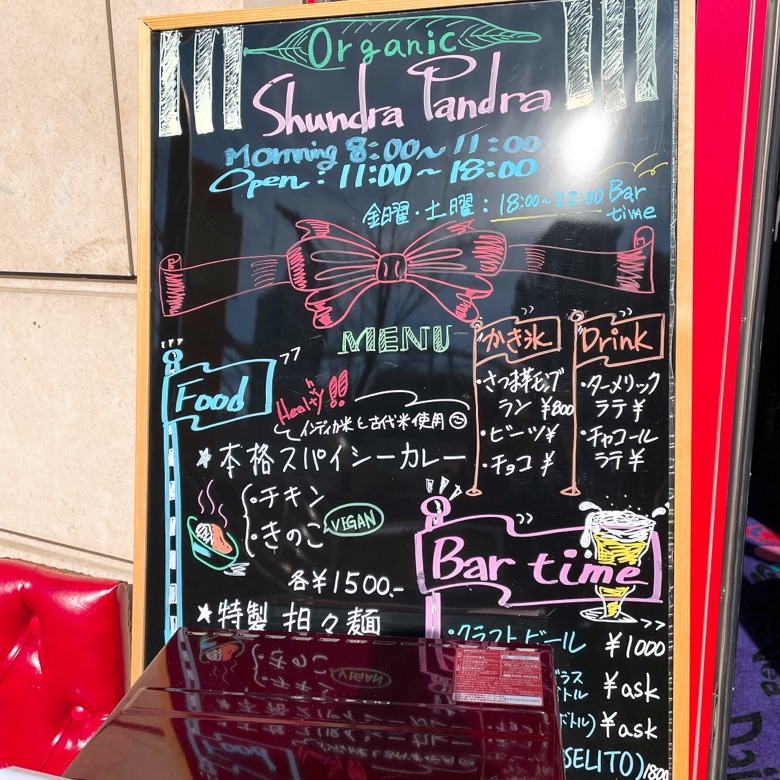 Organic
Shundra Pandra
Morning 8:00~11:00
Open: 11:00~18:00
金曜・土曜: 18:00~22:00 Bar time
MENU
Food
Healthy!!
インディカ米と古代米使用
★本格スパイシーカレー
・チキン
・きのこ VEGAN
各¥1500.-
★特製 担々麺
かき氷
・さつま芋モンブ
ラン ¥800
・ビーツ¥
・チョコ ¥
Drink
・ターメリック
ラテ¥
・チャコール
ラテ¥
Bar time
・クラフトビール ¥1000
¥ask
ボトル) ¥ask
SELITO) 1800